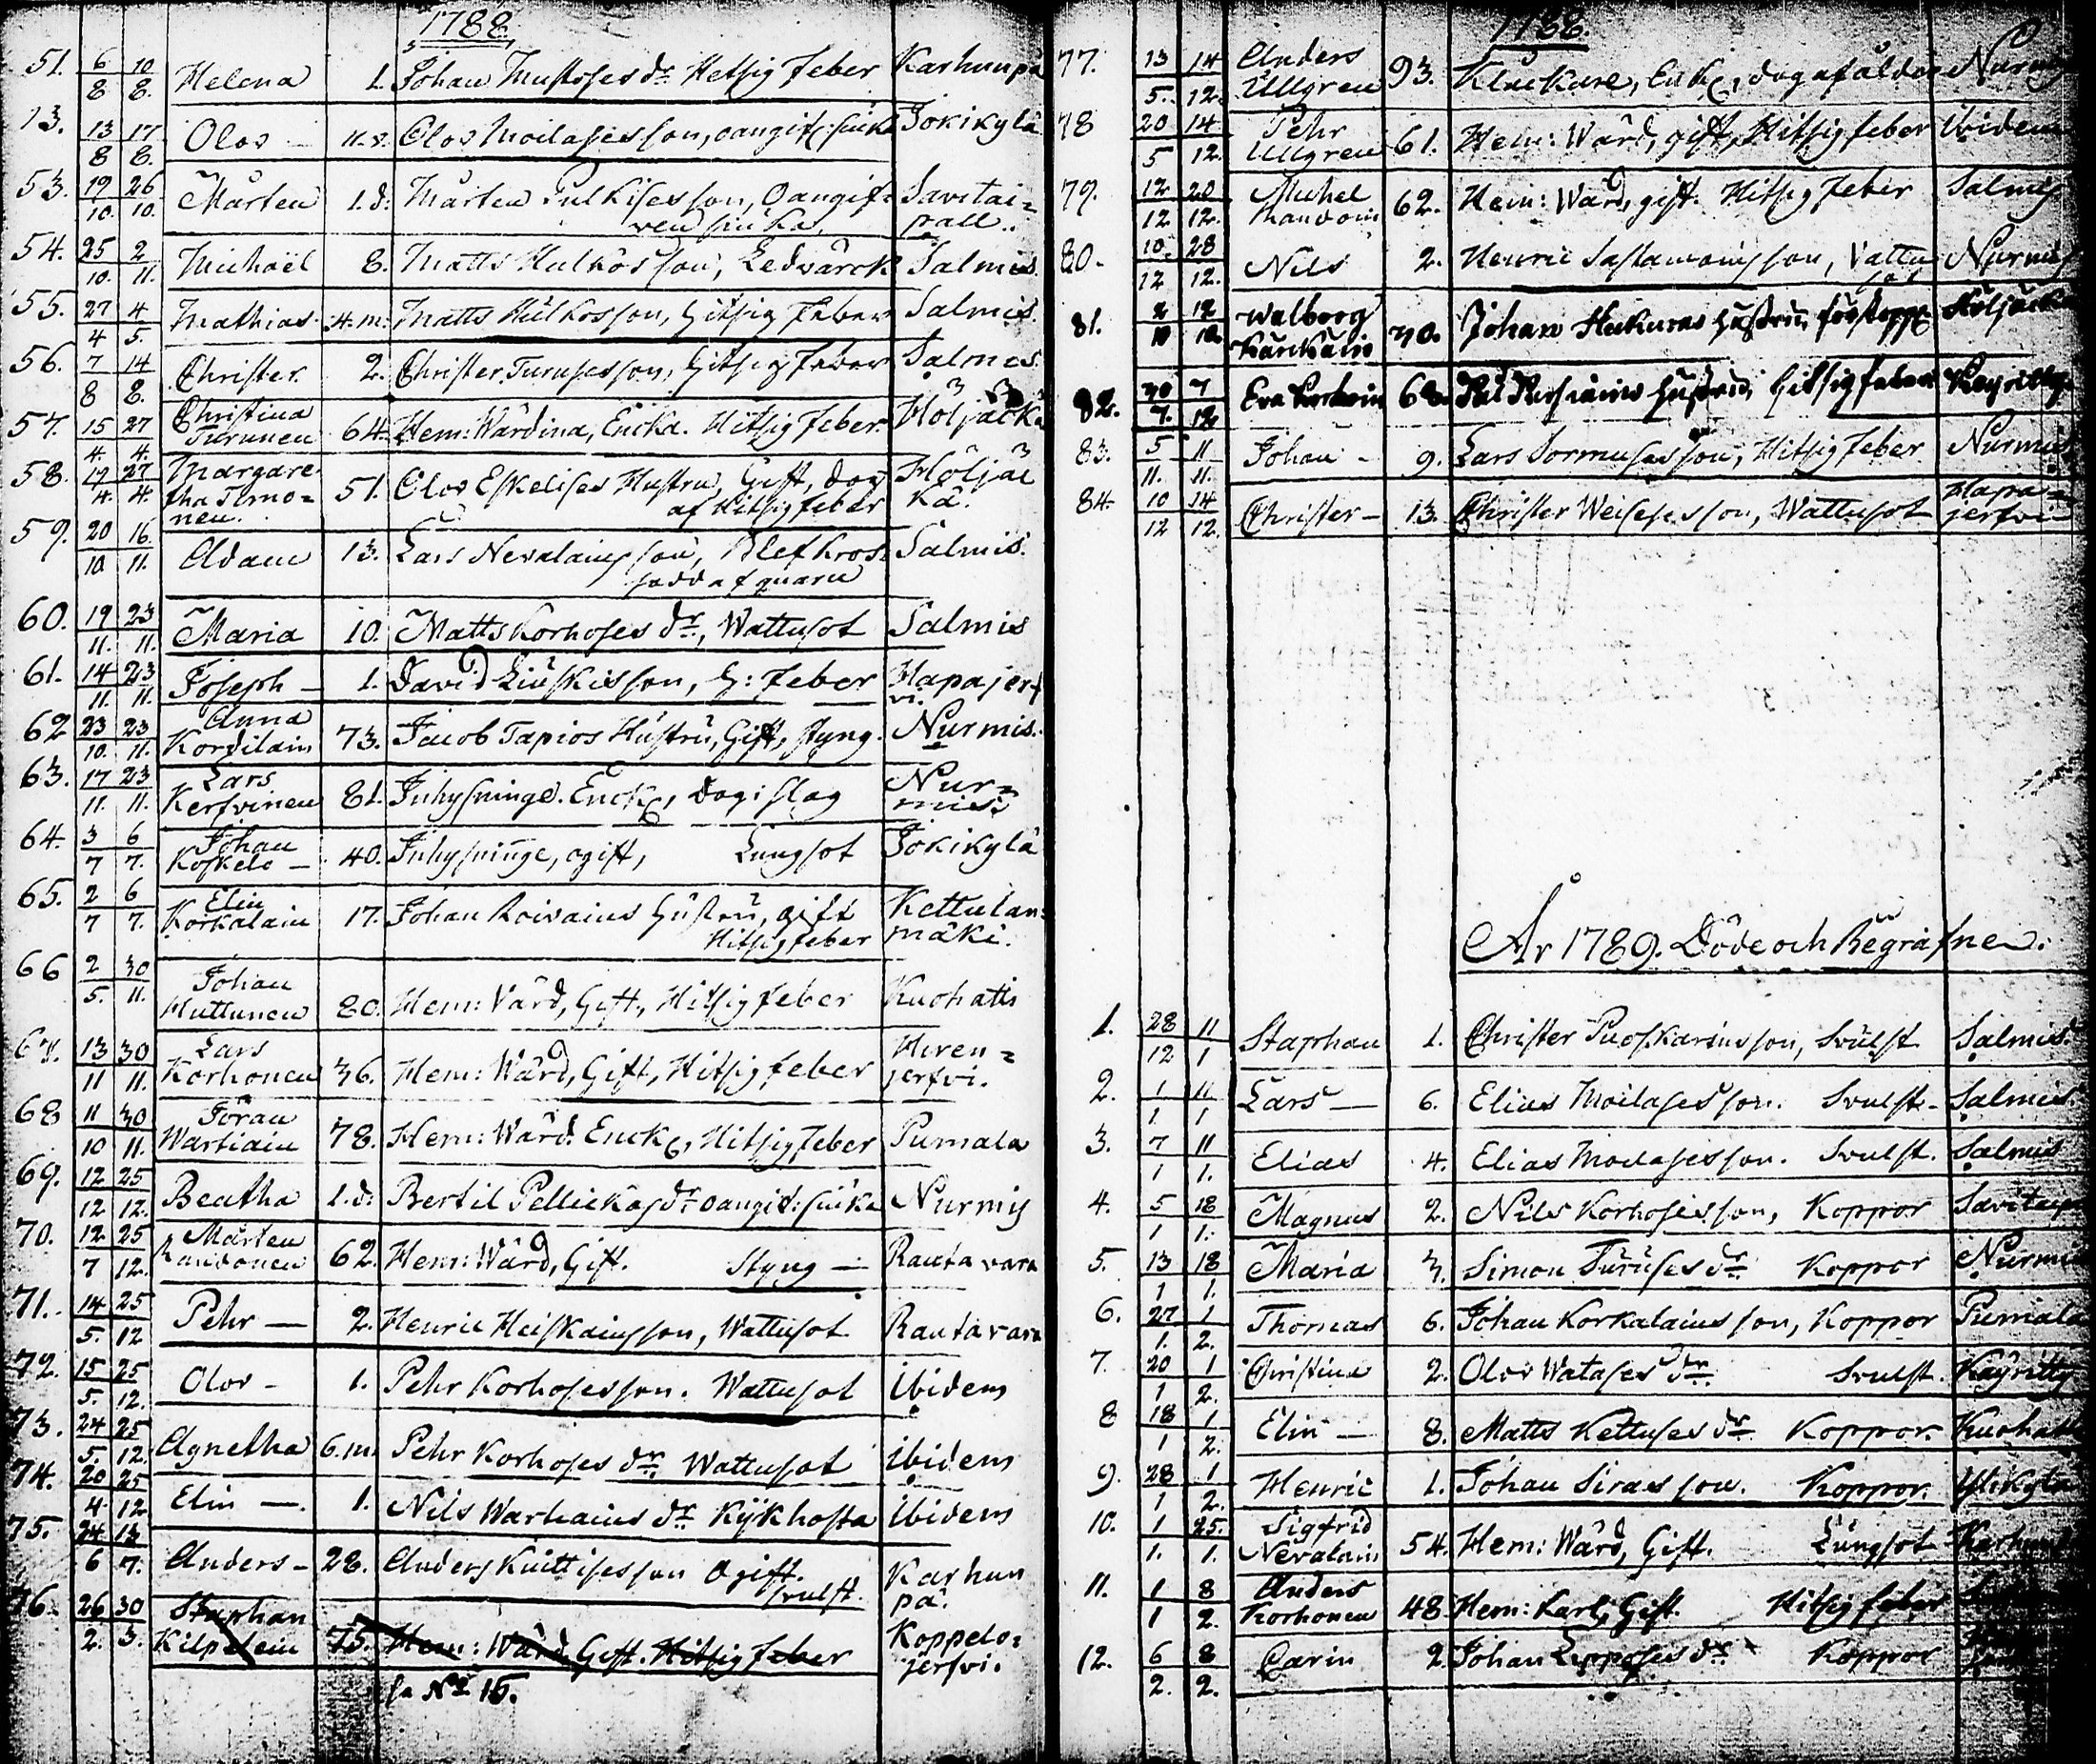 1788.
51. 6/8 10/8. Helena 1. Johan Mustoses dr. Hetsig feber Karhunpä
13. 13/8 17/8. Olov 11.v. Olov Moilasesson, oangif: siuka Jokikylä
53. 19/10. 26/10. Mårten 1.d. Mårten Pulkisesson, Oangif= Savitai=
ven siuka. pall..
54. 25/10. 2/11. Michaël 8. Matts Hulkosson, Ledvärck Salmis.
55. 27/4 4/5. Mathias 4.m. Matts Hulkosson, Hitsig feber Salmis.
56. 7/8 14/8. Christer. 2. Christer Turusesson, Hitsig feber Salmis.
57. 15/4. 27/4. Christina
Turunen 64. Hem: Wärdina, Encka. Hitsig feber. Höljäckä
58. 19/4. 27/4 Margare
tha Timo=
nen. 51. Olov Eskelises Hustru, Gift, dog Höljäc
af Hitsig feber kä.
59. 20/10 16./11. Adam 13. Lars Nevalainsson, Blef kros= Salmis.
sadd af quarn
60. 19/11. 23/11. Maria 10. Matts Korhoses dr., Wattusot Salmis
61. 14/11. 23/11. Joseph 1. David Liuskisson, H: feber Hapajerf
vi.
62 23/10. 23/11. Anna
Kordilain 73. Jacob Tapios Hustru, Gift, styng. Nurmis.
63. 17/11. 23/11. Lars
Kerfvinen 81. Inhysninge. Enckl, dog i slag Nur=
mis.
64. 3/7 6/7. Johan
Koskelo 40. Inhysninge, ogift, Lungsot Jokikylä
65. 2/7 6/7. Elin
Korkalain 17. Johan Roivains Hustru, gift Kettulan=
Hitsig feber mäki.
66 2/5. 30/11. Johan
Huttunen 80. Hem: Värd, Gift, Hitsig feber Kuohatti
67. 13/11 30/11. Lars
Korhonen 36. Hem: Wärd, Gift, Hitsig feber Hiren=
jerfvi.
68 11/10 30/11. Jöran
Wartiain 78. Hem: Wärd. Enckl, Hitsig feber Pumala
69. 12/12 25/12. Beatha 1.d. Bertil Pellickas dr oangid: siuka Nurmis
70. 12/7 25/12. Mårten
Randonen 62. Hem: Wärd, Gift. Styng Rautavara
71. 14/5. 25/12 Pehr 2. Henric Heiskainsson, Wattusot Rautavara
72. 15/5. 25/12. Olov 1. Pehr Korhosesson. Wattusot Ibidem
73. 24/5. 25/12. Agnetha 6.m. Pehr Korhoses dr. Wattusot Ibidem
74. 20/4 25/12 Elin 1. Nils Warhains dr. Kikhosta Ibidem
75. 24/6 13/7. Anders 28. Anders Kuittisesson Ogift. Karhun
svulst. pä.
76. 26/2. 30/3. Staphan
Kilpelein 75. Hem: Wärd. Gift. Hitsig feber Koppelo=
jerfvi.
se No 16.
1788.
77. 13/5. 14/12. Anders
Ullgren 93. Kluckare, Enkl, dog af ålder
78 20/5 14/12. Pehr
Ullgren 61. Hem: Wärd, gift, Hitsig feber Ibidem
79. 12/12 20/12. Michel
62. Hem: Wärd, gift. Hitsig feber Salmis
80. 10/12 28/12. Nils 2. Henric Sastamoinsson, Vattu Nurmis
sot
81. 2/10 12/10. Walborg
Kärckäin 70. Johan Huckuras Hustru, förstopp. Höljäckä
82. 30/7. 7/12 Eva 68. Hustru, Hitsig feber Keyritty
83. 5/11. 11/11. Johan 9. Lars Sormusesson, Hitsig feber Nurmis
84. 10/12 14/12. Christer 13. Christer Weisesesson, Wattusot Hapa=
jerfvi
År 1789. Döde och Begrafne.
1. 28/12 11/1 Staphan 1. Christer Puoskarinsson, Svulst Salmis.
2. 1/1 11/1 Lars 6. Elias Moilasesson. Svulst. Salmis
3. 7/1 11/1. Elias 4. Elias Moilasesson. Svulst. Salmis
4. 5/1 18/1. Magnus 2. Nils Korhosesson, Koppor Savitaip
5. 13/1 18/1. Maria 3. Simon Turuses dr. Koppor Nurmis
6. 27/1. 1/2. Thomas 6. Johan Korkalainsson, Koppor Pumala
7. 20/1 1/2. Christina 2. Olov Watases dr. Svulst. Käyritty
8 18/1 1/2. Elin 8. Matts Kettuses dr. Koppor. Kuohatti
9. 28/1 1/2. Henric 1. Johan Sirasson. Koppor. Ylikylä
10. 1/1. 25./1. Sigfrid
Nevalain 54. Hem: Wärd, Gift. Lungsot
11. 1/1 8/2. Anders
Korhonen 48. Hem: Karl, Gift. Hitsig feber
12. 6/2. 8/2. Carin 2. Johan Lipposes dr. Koppor